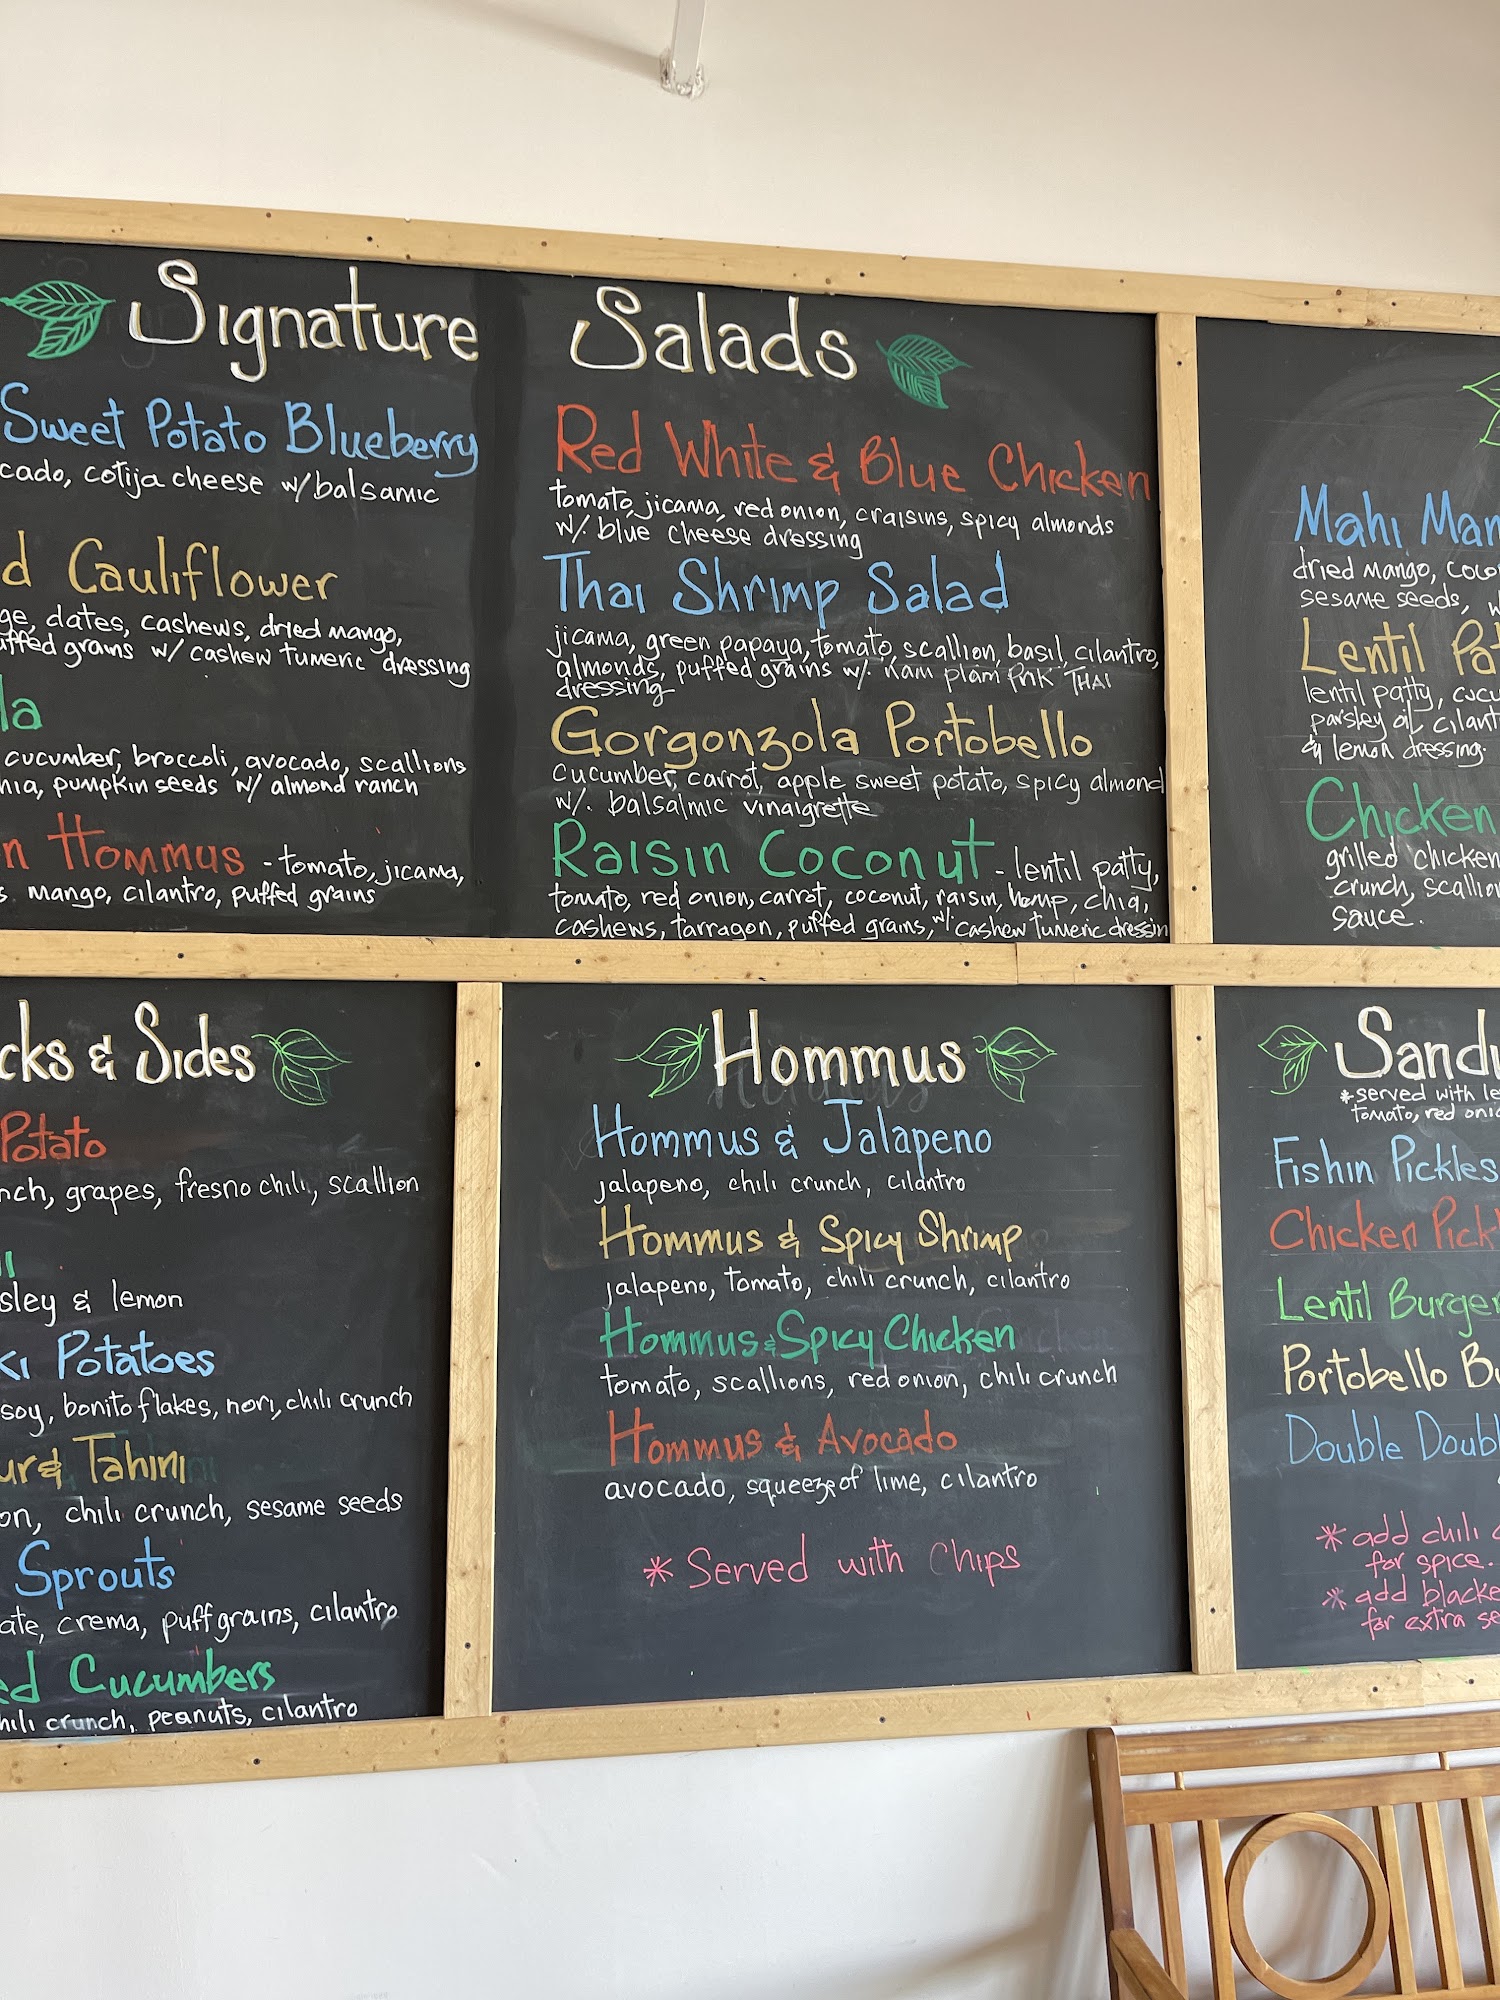 Signature Salads
Sweet Potato Blueberry
cado, cotija cheese w/ balsamic
d Cauliflower
ge, dates, cashews, dried mango,
uffed grains w/ cashew tumeric dressing
la
cucumber, broccoli, avocado, scallions
hia, pumpkin seeds w/ almond ranch
n Hommus - tomato, jicama,
s. mango, cilantro, puffed grains
Red White & Blue Chicken
tomato, jicama, red onion, craisins, spicy almonds
w/. blue cheese dressing
Thai Shrimp Salad
jicama, green papaya, tomato, scallion, basil, cilantro,
almonds, puffed grains w/. nam plam Prik THAI
dressing
Gorgonzola Portobello
cucumber, carrot, apple sweet potato, spicy almond
w/. balsalmic vinaigrette
Raisin Coconut - lentil patty,
tomato, red onion, carrot, coconut, raisin, hemp, chia,
cashews, tarragon, puffed grains, w/. cashew tumeric dressin
Mahi Man
dried mango, coco
sesame seeds, w
Lentil Pat
lentil patty, cucu
parsley oil cilant
& lemon dressing.
Chicken
grilled chicken
crunch, scallio
sauce.
cks & Sides
Potato
nch, grapes, fresno chili, scallion
sley & lemon
ki Potatoes
soy, bonito flakes, nori, chili crunch
ur & Tahini
on, chili crunch, sesame seeds
Sprouts
ate, crema, puff grains, cilantro
ed Cucumbers
hili crunch, peanuts, cilantro
Hommus
Hommus & Jalapeno
jalapeno, chili crunch, cilantro
Hommus & Spicy Shrimp
jalapeno, tomato, chili crunch, cilantro
Hommus & Spicy Chicken
tomato, scallions, red onion, chili crunch
Hommus & Avocado
avocado, squeeze of lime, cilantro
* Served with Chips
Sandw
*served with le
tomato, red onio
Fishin Pickles
Chicken Pickl
Lentil Burger
Portobello Bu
Double Doubl
* add chili c
for spice.
* add blacke
for extra se